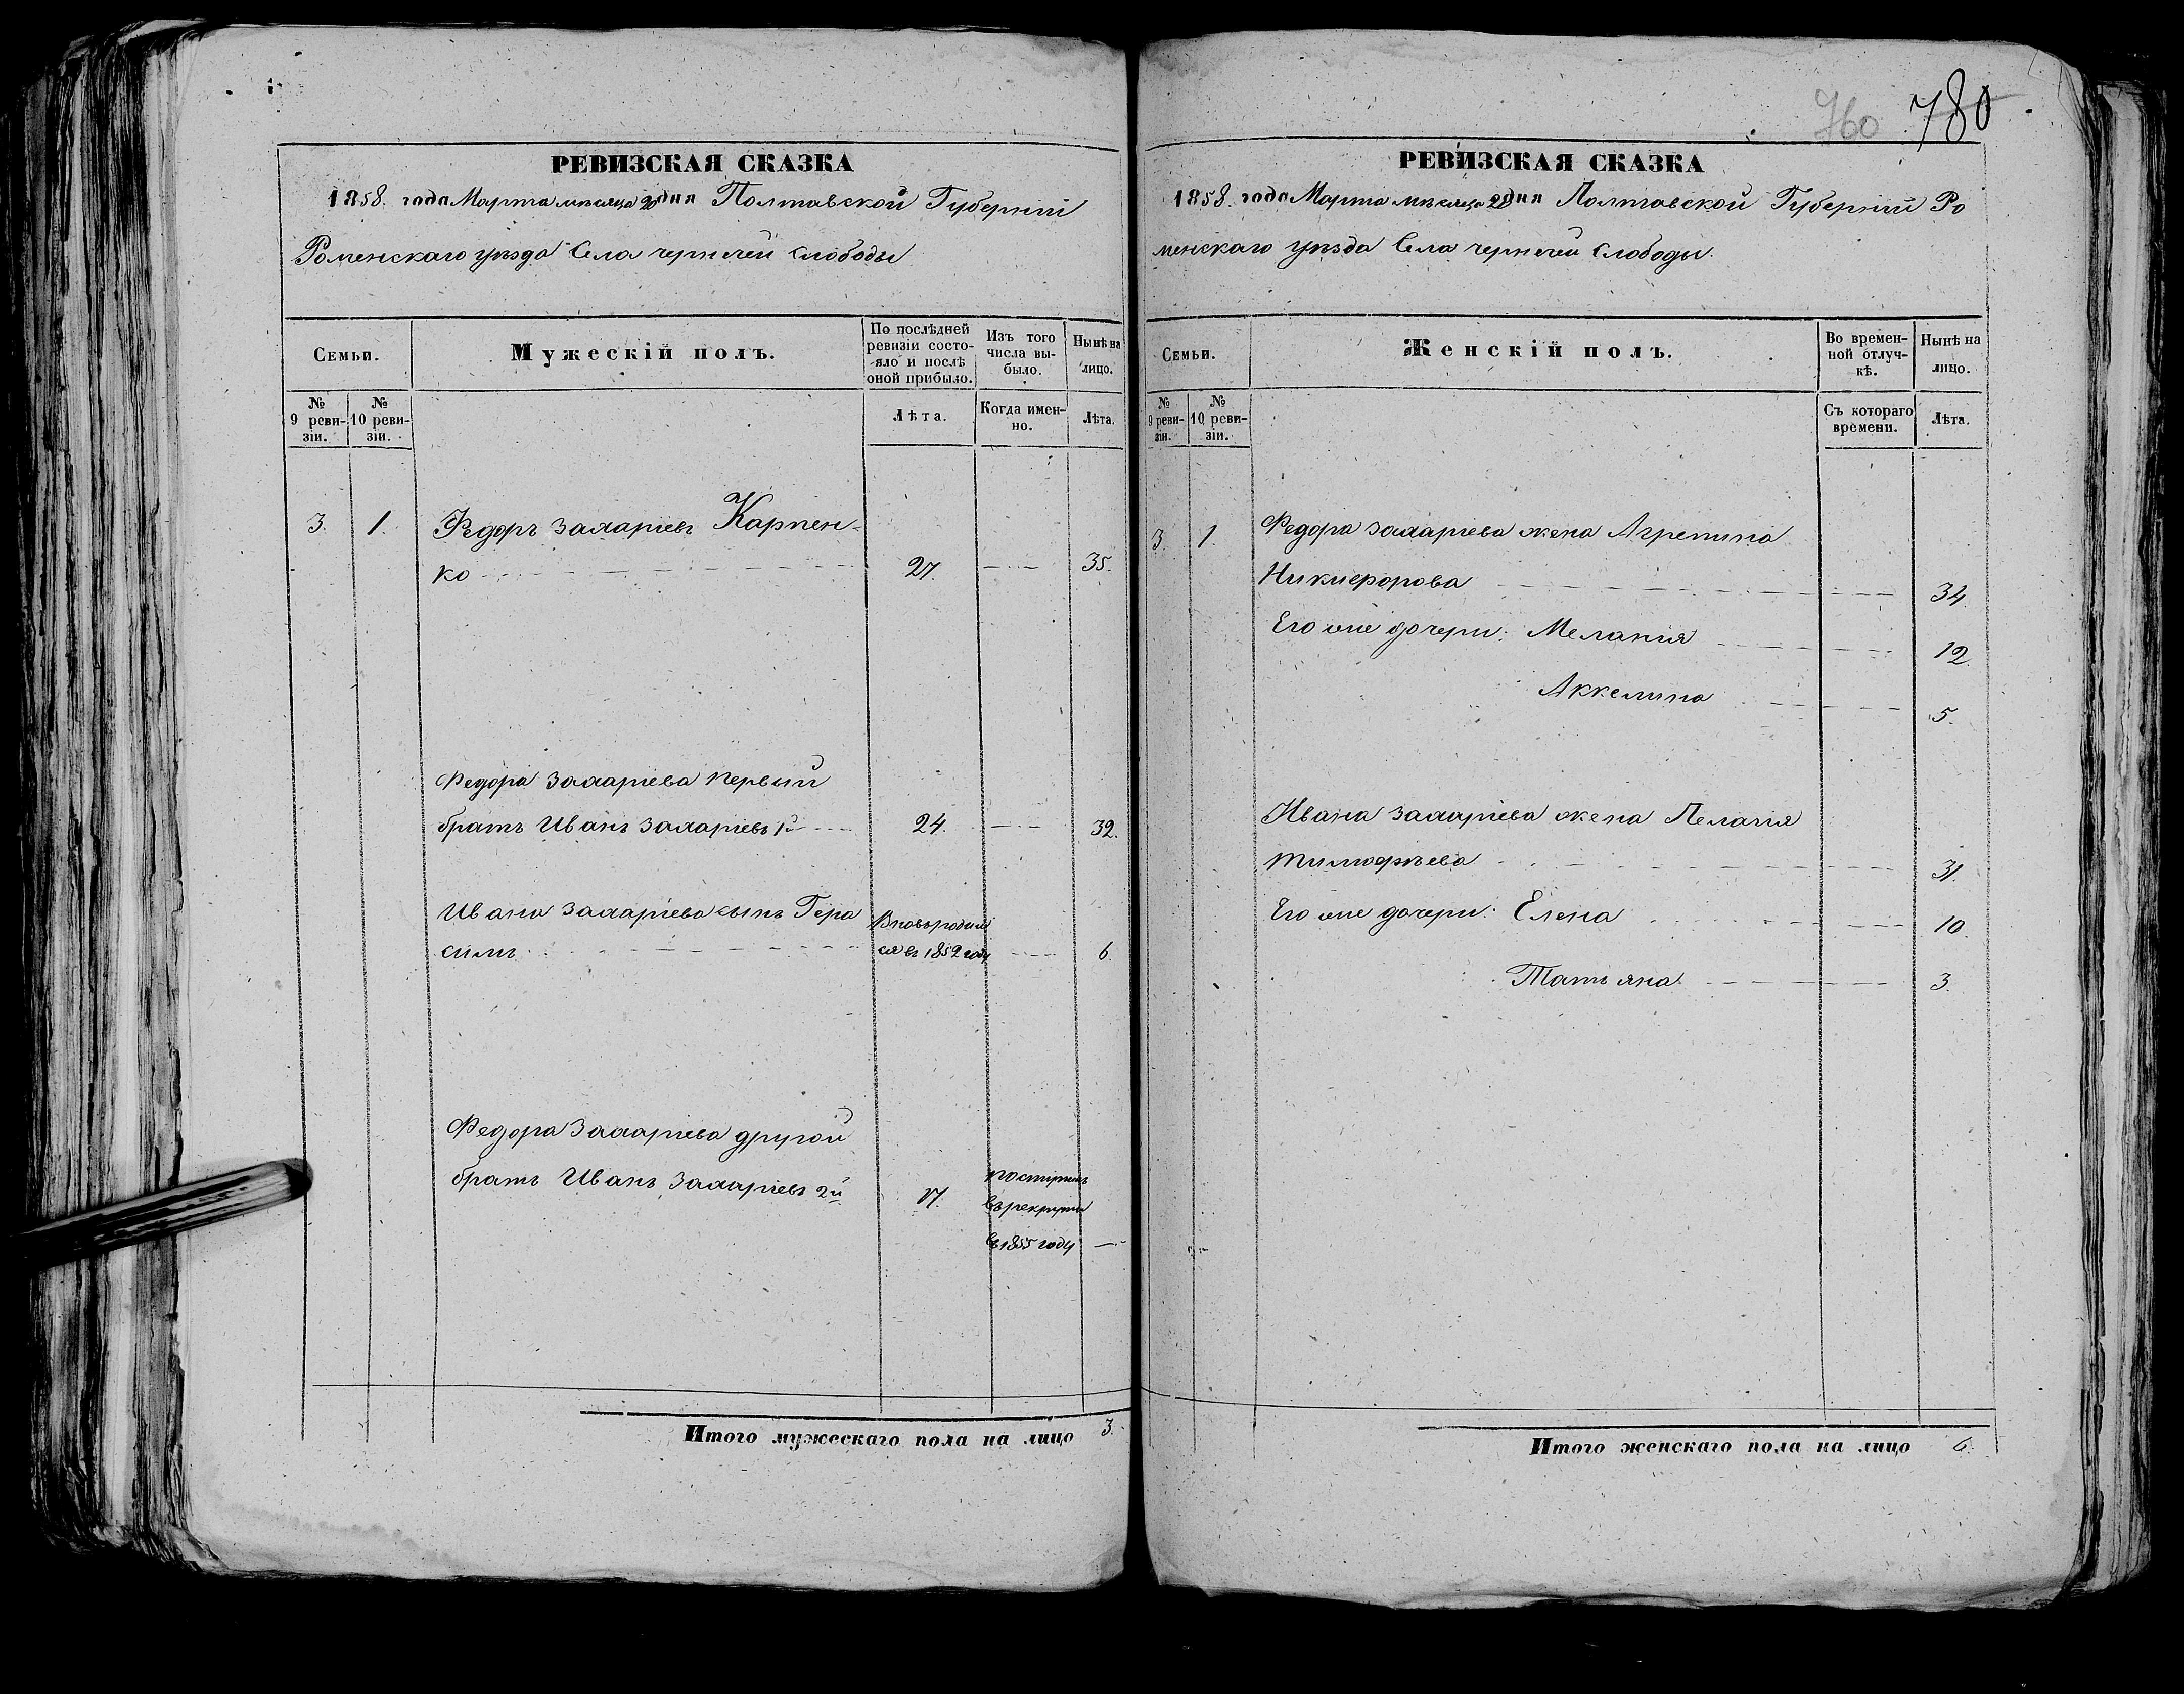 760 780
РЕВИЗСКАЯ СКАЗКА
1858. года Марта мѣсяца 20 дня Полтавской Губерніи
Роменскаго уѣзда Села чернечей слободы
Семьи.
Мужескій полъ.
По послѣдней ревизіи состо-
яло и послѣ
оной прибыло.
Изъ того
числа вы-
было.
Нынѣ на
лицо.
№
9 реви-
зіи.
№
10 реви-
зіи.
Лѣта.
Когда имен-
но.
Лѣта.
3. 1. Федоръ Захаріевъ Карпен-
ко 27. 35.
Федора Захаріева первый
братъ Иванъ Захаріевъ 1й 24. 32.
Ивана Захаріева сынъ Гера
симъ
Вновь родил
ся въ 1852 году 6
Федора Захаріева другой
братъ Иванъ Захаріевъ 2й 17.
поступилъ
въ рекруты
въ 1855 году
Итого мужескаго пола на лицо 3.
РЕВИЗСКАЯ СКАЗКА
1858. года Марта мѣсяца 20 дня Полтавской Губерніи Ро
менскаго уѣзда Села чернечей слободы.
Семьи.
Женскій полъ.
Во времен-
ной отлуч-
кѣ.
Нынѣ на
лицо.
№
9 реви-
зіи.
№
10 реви-
зіи.
Съ котораго
времени.
Лѣта.
3. 1. Федора Захаріева жена Агрепина
Никиефорова 34.
Его же дочери: Меланія 12
Аккелина 5.
Ивана Захаріева жена Пелагія
Тимофѣева 31.
Его же дочери: Елена 10.
Татьяна 3.
Итого женскаго пола на лицо 6.